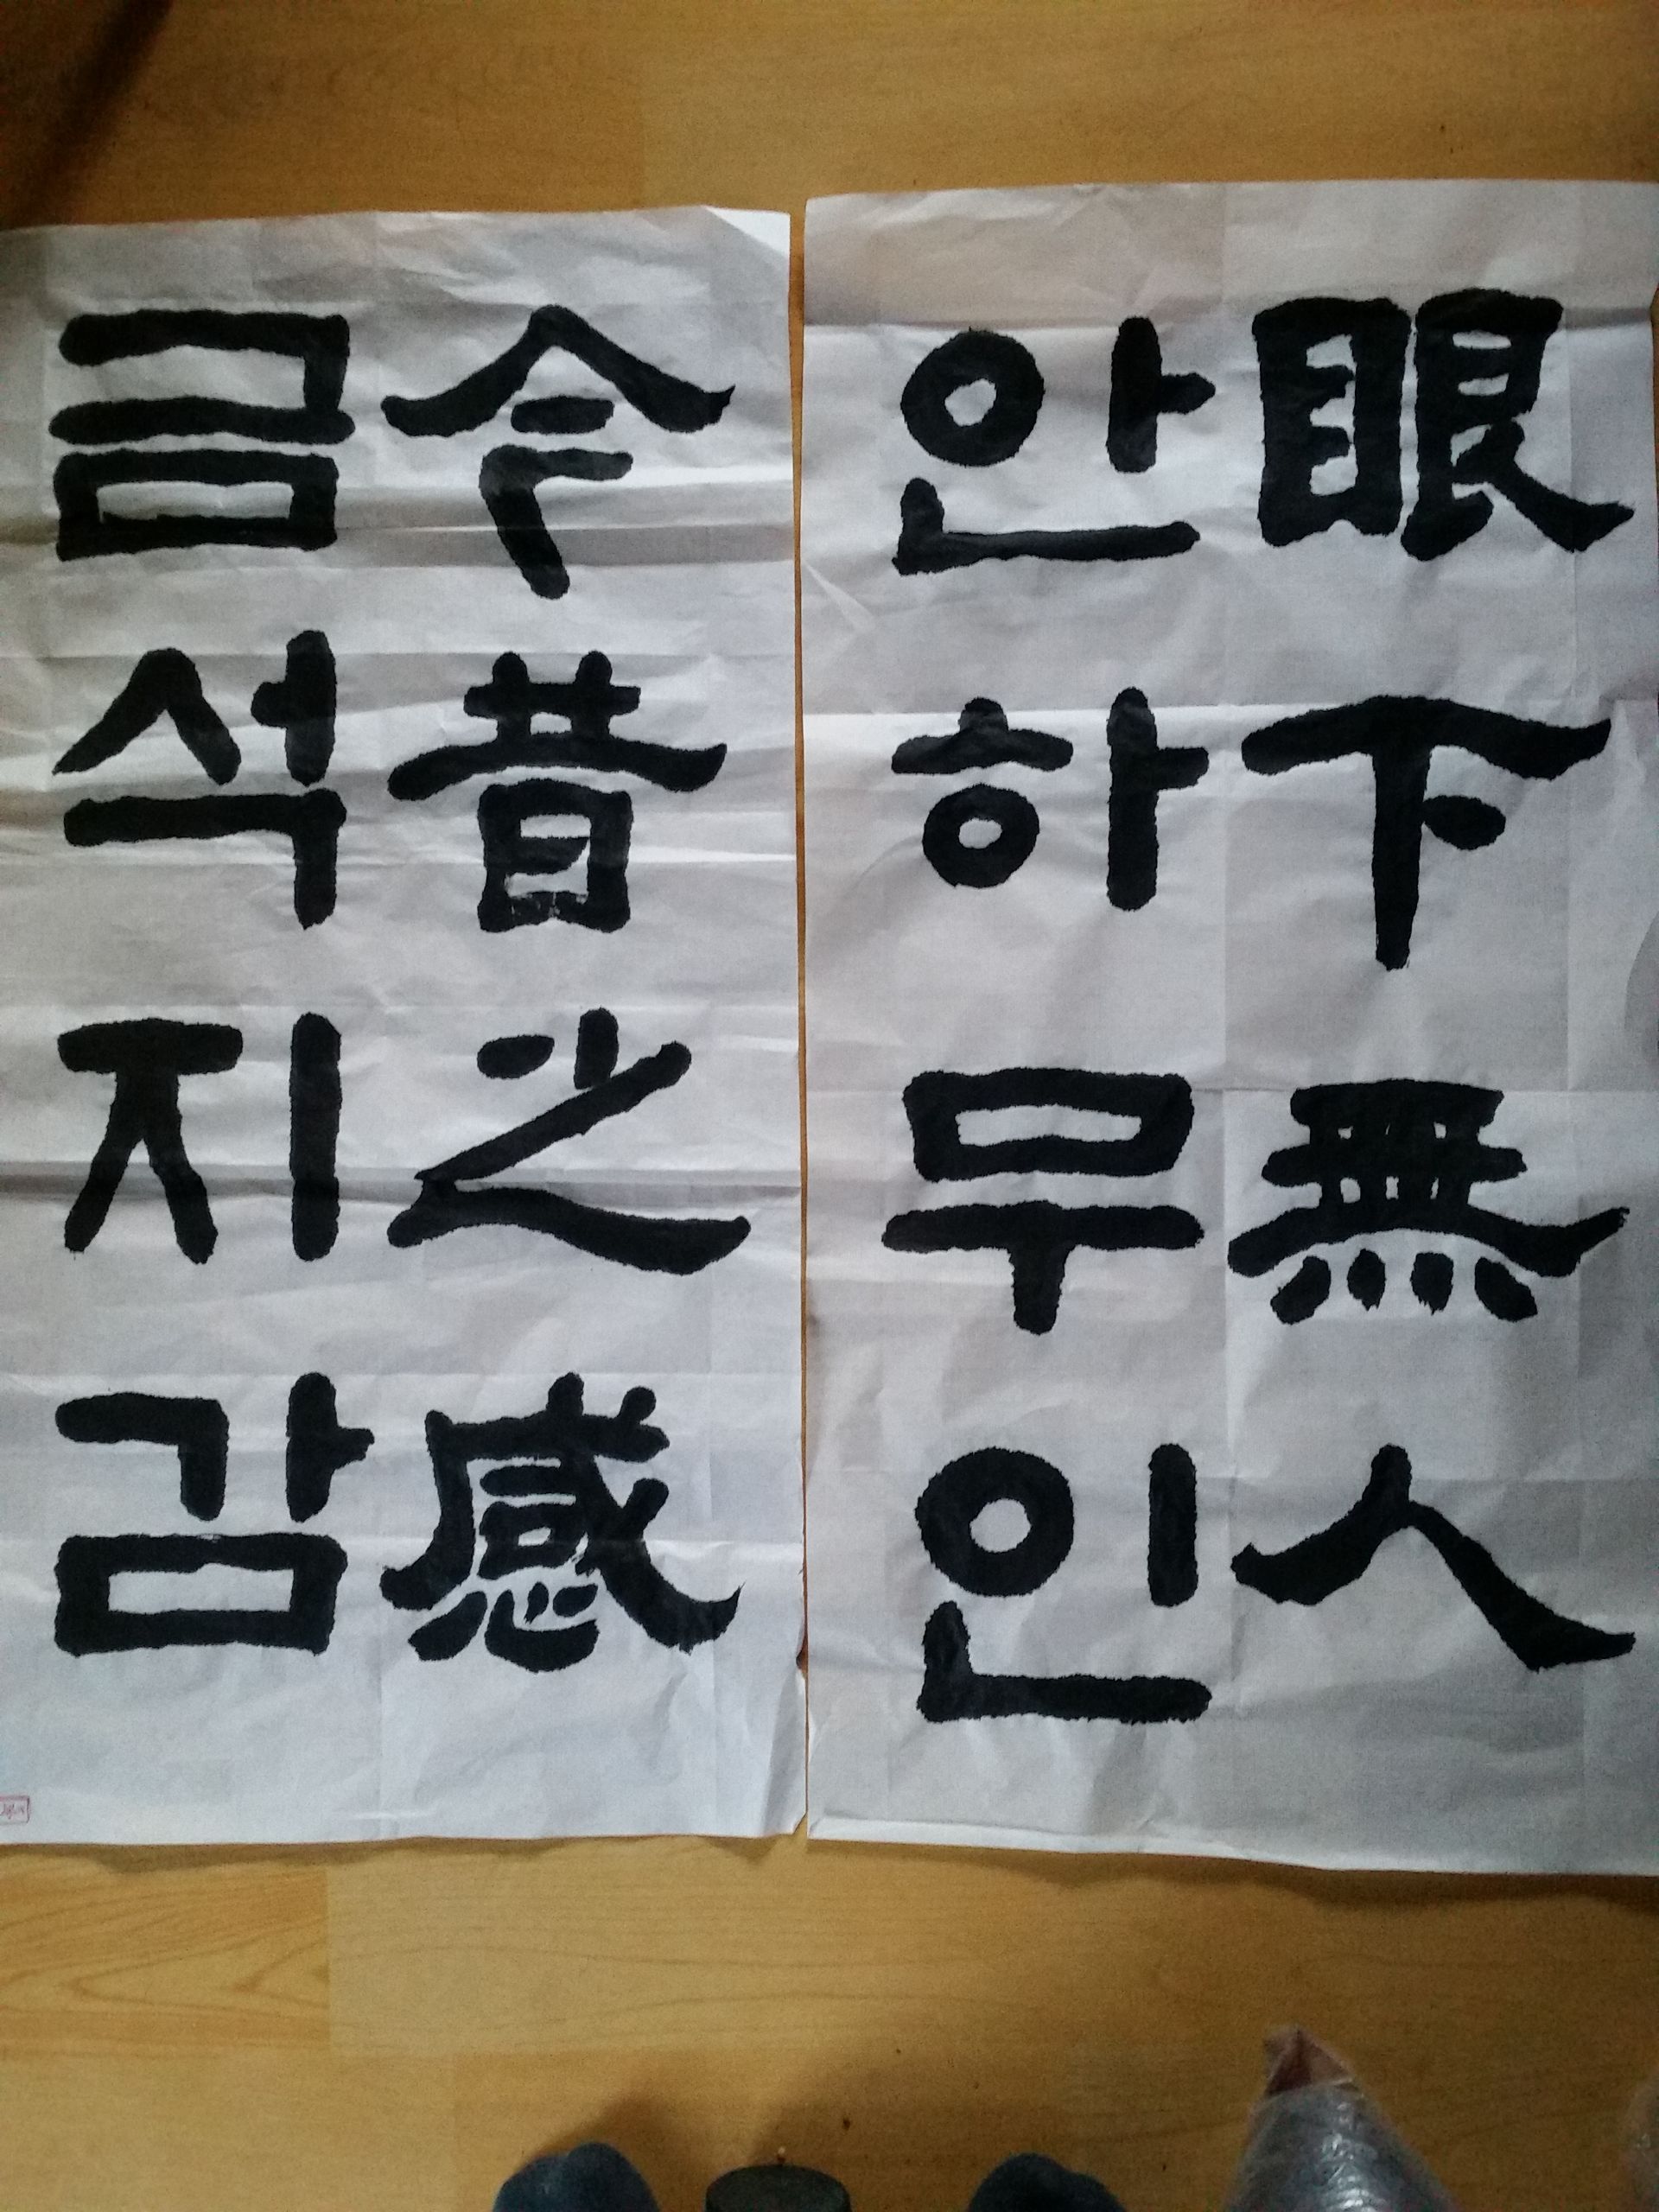 眼下無人
안하무인
今昔之感
금석지감